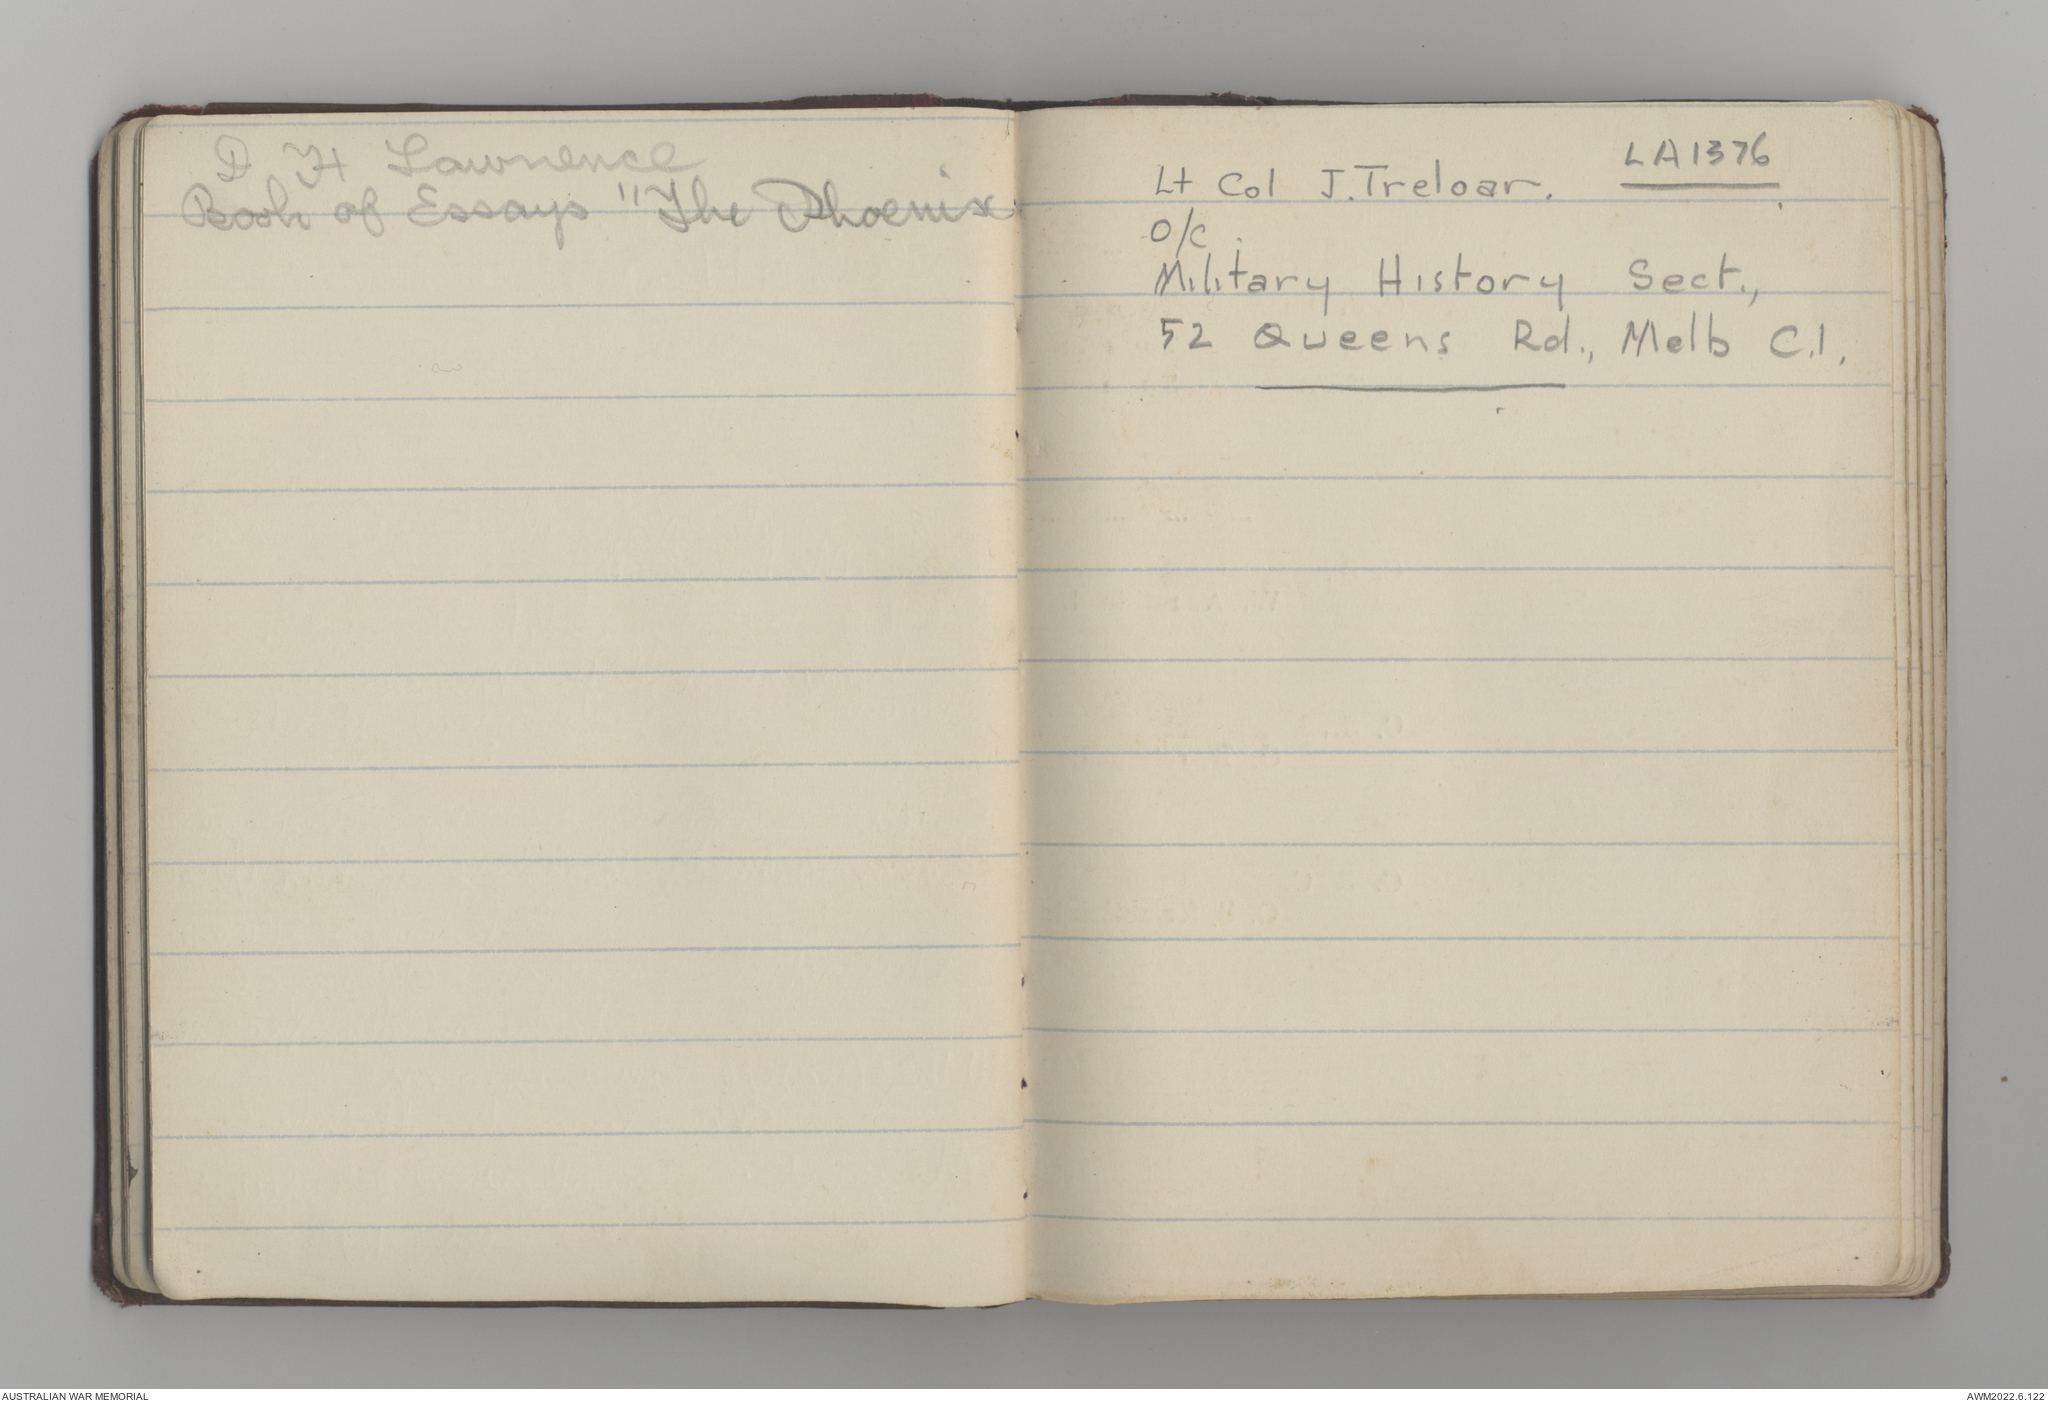 D H Lawrence
Book of Essays "The Phoenix
LA1376
Lt Col J. Treloar.
O/C
Military History Sect.,
52 Queens Rd., Melb C.1.
AUSTRALIAN WAR MEMORIAL
AWM2022.6.122